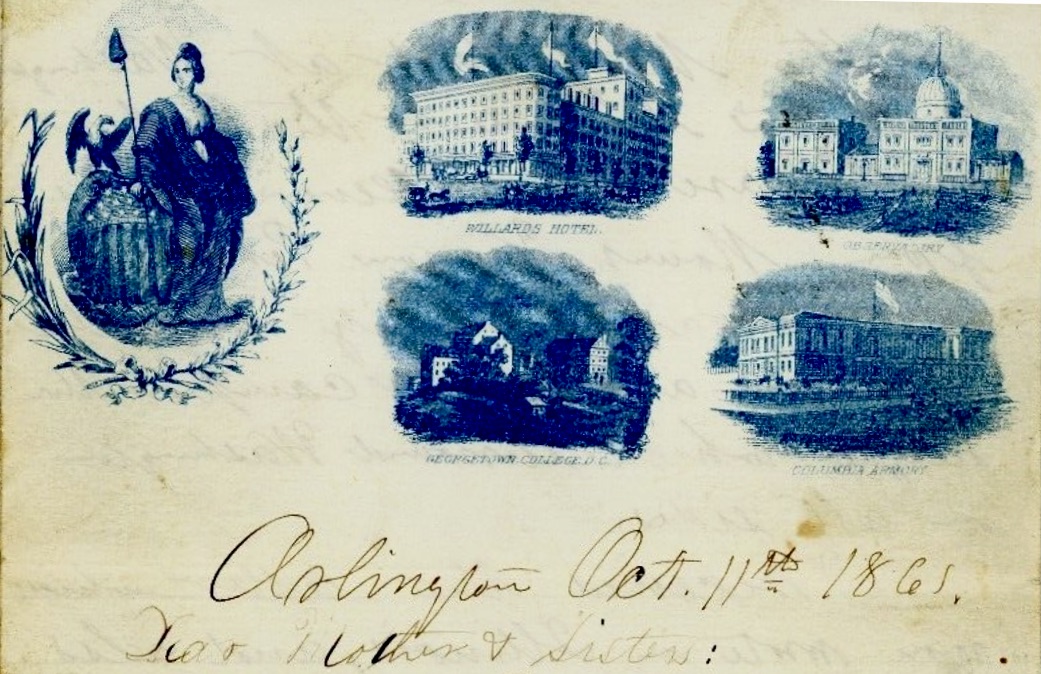 WILLARDS HOTEL.
OBSERVATORY
GEORGETOWN COLLEGE D.C.
COLUMBIA ARMORY
Arlington Oct. 11th 1861.
Dear Mother & Sisters: